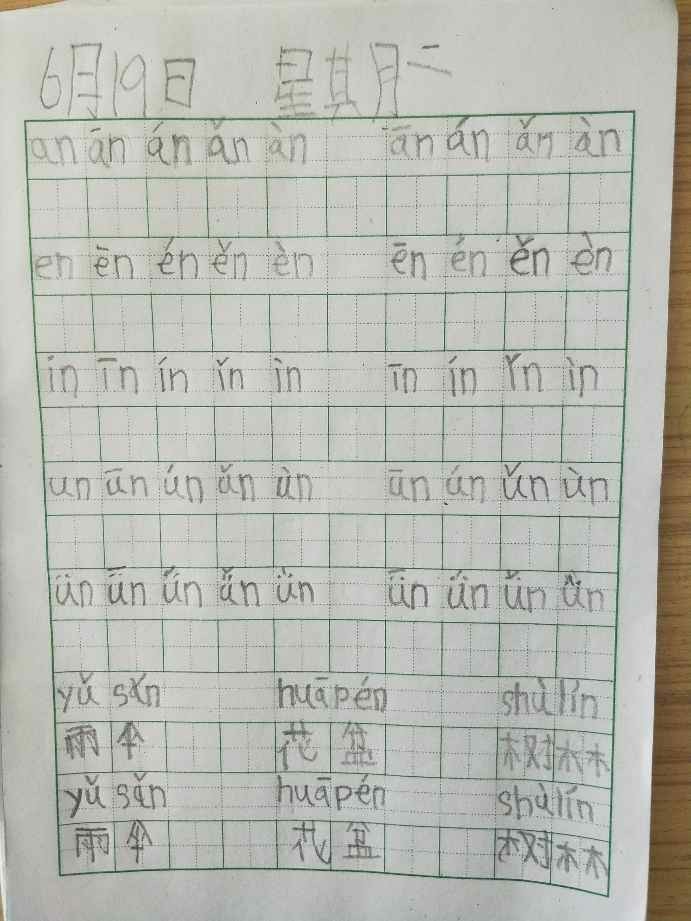 6月19日 星期二
an ān án ǎn àn ān án ǎn àn
en ēn én ěn èn ēn én ěn èn
in īn ín ǐn ìn īn ín ǐn ìn
un ūn ún ǔn ùn ūn ún ǔn ùn
ün ǖn ǘn ǚn ǜn ǖn ǘn ǚn ǜn
yǔ sǎn huāpén shùlín
雨伞 花盆 树林
yǔ sǎn huāpén shùlín
雨伞 花盆 树林